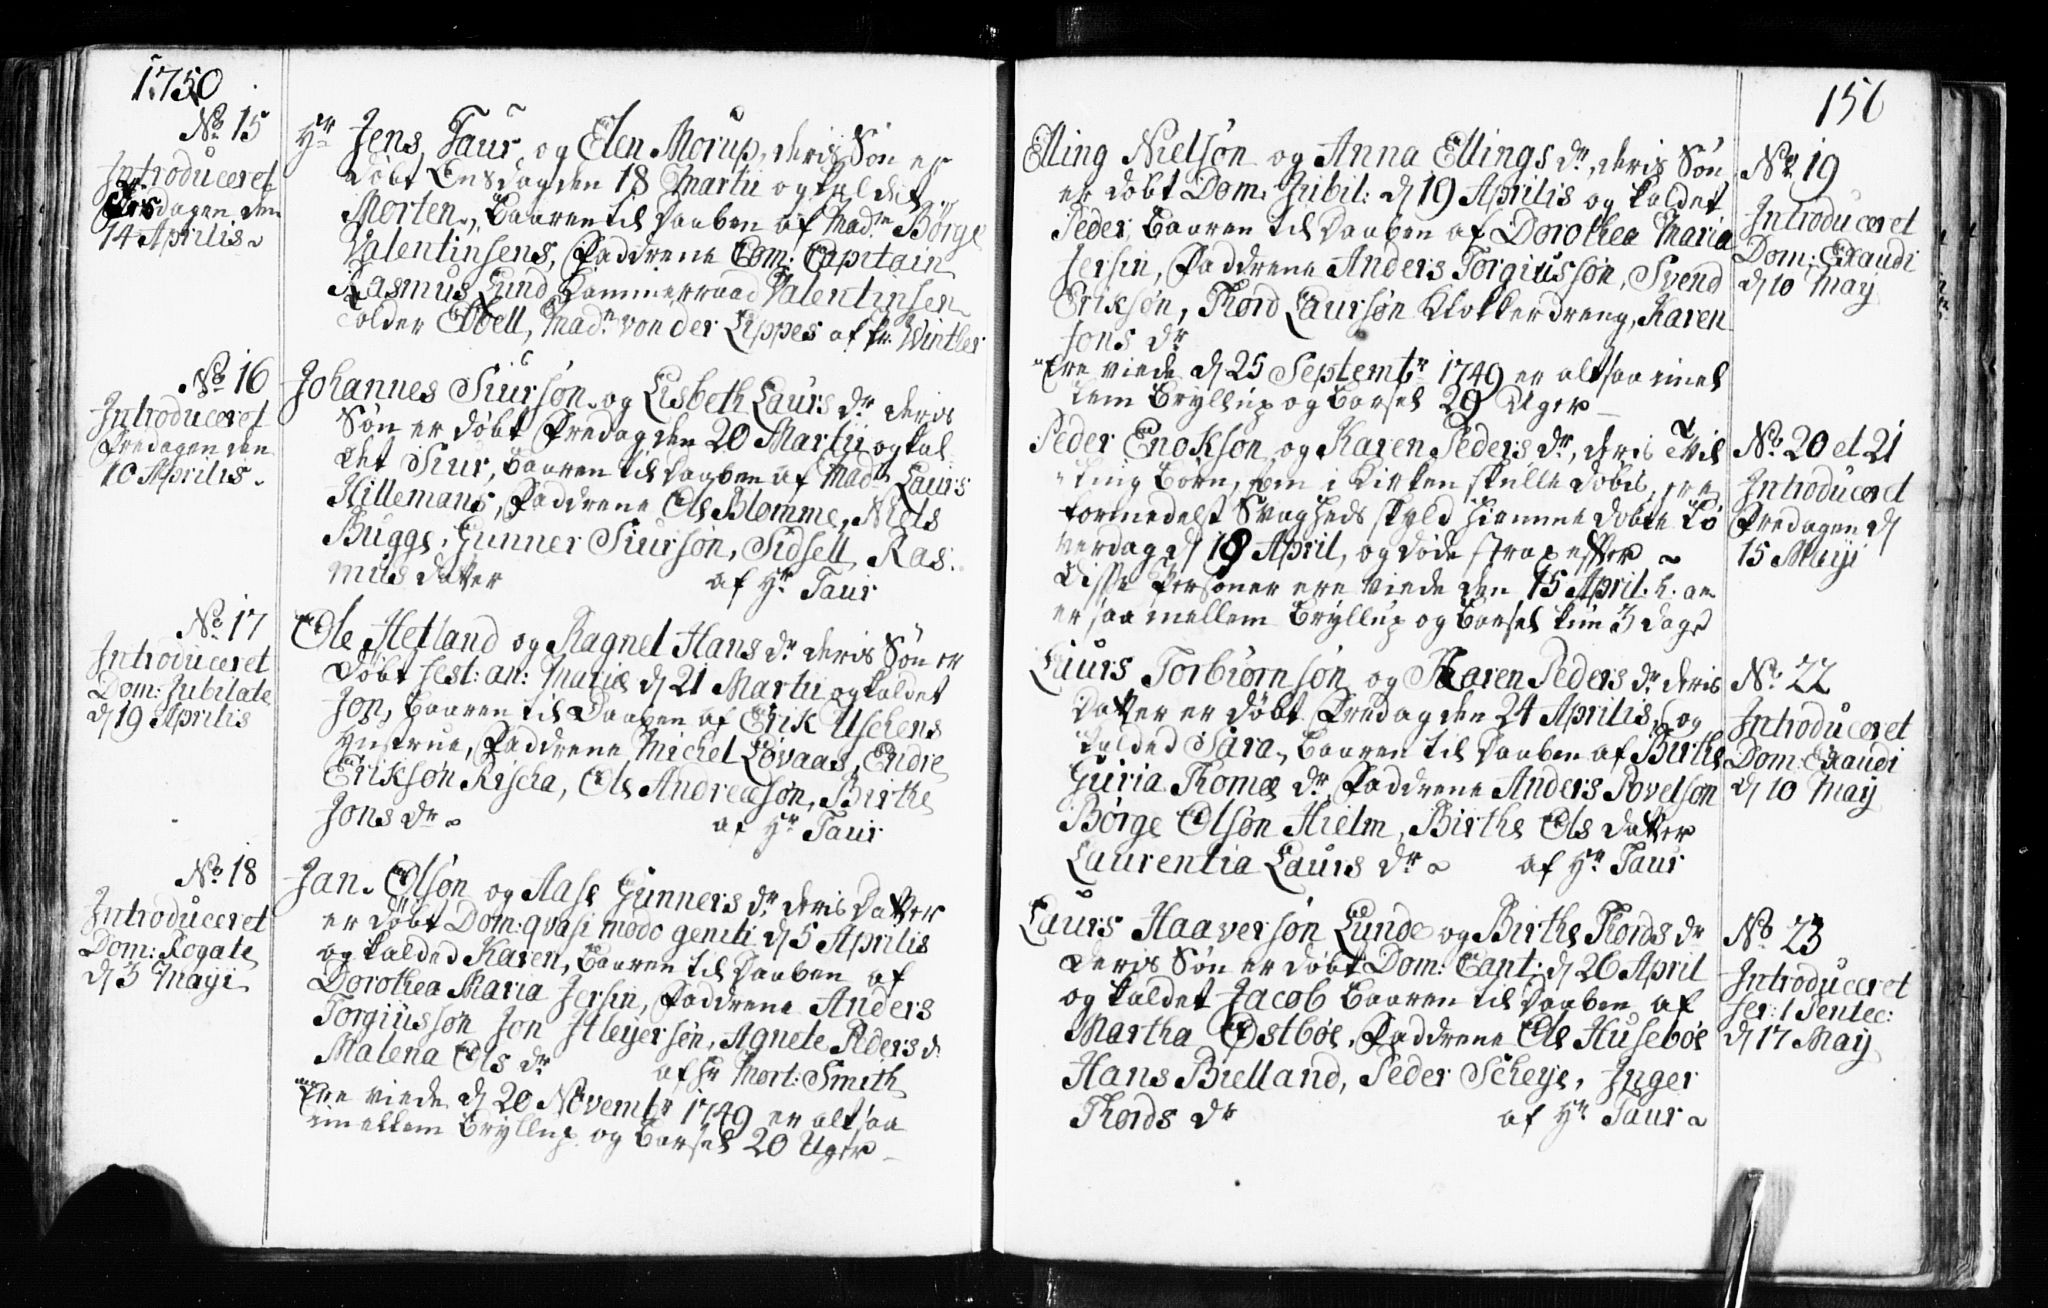 1750
No 15
Introduceret
dagen den
14 Aprilis
Hr Jens Taur og Elen Morup, deris Søn er
døbt Onsdag den 18 Martii og kaldet
Morten, baaren til Daaben af Madme Børge
Valentinsens, Faddrene Com: Capitain
Rasmus Lund Cammerraad Valentinsen
Tolder Ebbell, Made von der Lippes af hr. Winther
No 16
Introduceret
Fredagen den
10 Aprilis.
Johannes Siursøn og Lisbeth Laurs dr deris
Søn er døbt Fredag den 20 Martii og kal
det Siur, baaren til Daaben af Made Laurs
Hillemans, Faddrene Ole Blomme, Niels
Bugge, Gunner Siursøn, Sidsell Ras:
mus datter af Hr Taur
No 17
Introduceret
Dom: Jubilate
d 19 Aprilis
Ole Hetland og Ragnel Hans dr deris Søn er
døbt fest: an: Mariæ d 21 Martii og kaldet
Jon, baaren til Daaben af Erik Uschens
Hustrue, Faddrene Michel Løvaas, Endre
Eriksøn Rischa, Ole Andreasøn, Birthe
Jons dr af Hr Taur
No 18
Introduceret
Dom: Rogate
d 3 Maji
Jan Olsøn og Aase Gunners dr deris Datter
er døbt Dom: qvasi modo geniti d 5 Aprilis
og kalded Karen, baaren til Daaben af
Dorothea Maria Jersin, Faddrene Anders
Torgiusson Jon Hleyersøn, Agnete Peders d
Malena Ols dr af hr Mort: Smith
Ere viede d 20 Novembr 1749 er altsaa
imellem Bryllup og Barsel 20 Uger
156
Elling Nielsøn og Anna Ellings dr, deris Søn
er døbt Dom: Jubil: d 19 Aprilis og kaldet
Peder, baaren til Daaben af Dorothea Maria
Jersin, Faddrene Anders Torgiussøn, Svend
Eriksøn, Thord Laursøn Klokkerdreng, Karen
Jons dr
Ere viede d 25 Septembr 1749 er altsaa imel
lem Bryllup og Barsel 29 Uger
No 19
Introduceret
Dom: Exaudi
d 10 May
Peder Enoksøn og Karen Peders dr, deris Tvil
ling Børn, som i Kirken skulle døbis, ere
formedelst Svagheds skyld hiemme døbte Lø
verdag d 18 April, og døde strax efter
Disse Personer ere viede den 15 April. h. an
er saa mellem Bryllup og Barsel kun 3 dage
No 20 et 21
Introduceret
Fredagen d
15 Maji
Laurs Torbiørnsøn og Karen Peders dr deris
Datter er døbt Fredag den 24 Aprilis og
kalded Sara, baaren til Daaben af Birthe
Guria Thomæ dr, Faddrene Anders Povelsøn
Børge Olsøn Hielm, Birthe Ols datter
Laurentia Laurs dr af Hr Taur
No 22
Introduceret
Dom: Exaudi
d 10 May
Laurs Haaversøn Lunde og Birthe Thords dr
deris Søn er døbt Dom: Cant: d 26 April
og kaldet Jacob baaren til Daaben af
Martha Østbøe, Faddrene Ole Husebøe
Hans Bielland, Peder Scheye, Inger
Thords dr af Hr Taur
No 23
Introduceret
fer: 1 Pentec:
d 17 May